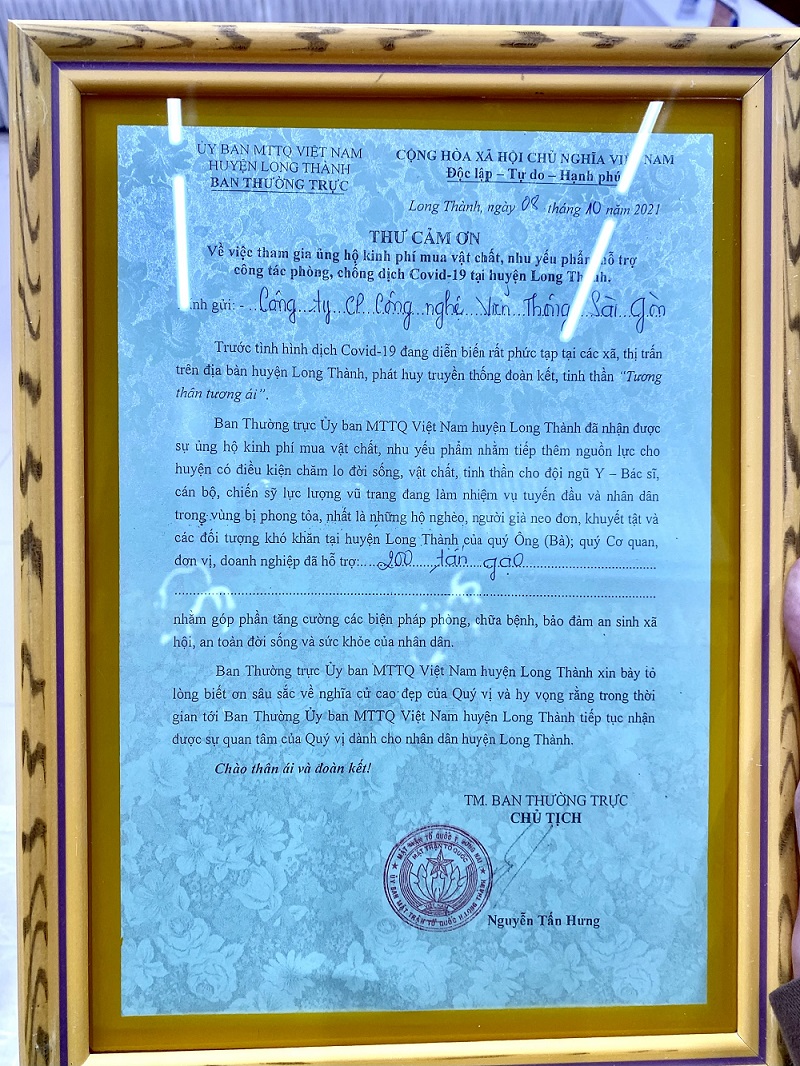 ỦY BAN MTTQ VIỆT NAM
HUYỆN LONG THÀNH
BAN THƯỜNG TRỰC
CỘNG HÒA XÃ HỘI CHỦ NGHĨA VIỆT NAM
Độc lập – Tự do – Hạnh phúc
Long Thành, ngày 08 tháng 10 năm 2021
THƯ CẢM ƠN
Về việc tham gia ủng hộ kinh phí mua vật chất, nhu yếu phẩm hỗ trợ
công tác phòng, chống dịch Covid-19 tại huyện Long Thành.
gửi: - Công ty CP Công nghệ Viễn Thông Sài Gòn
Trước tình hình dịch Covid-19 đang diễn biến rất phức tạp tại các xã, thị trấn
trên địa bàn huyện Long Thành, phát huy truyền thống đoàn kết, tinh thần “Tương
thân tương ái”.
Ban Thường trực Ủy ban MTTQ Việt Nam huyện Long Thành đã nhận được
sự ủng hộ kinh phí mua vật chất, nhu yếu phẩm nhằm tiếp thêm nguồn lực cho
huyện có điều kiện chăm lo đời sống, vật chất, tinh thần cho đội ngũ Y – Bác sĩ,
cán bộ, chiến sỹ lực lượng vũ trang đang làm nhiệm vụ tuyến đầu và nhân dân
trong vùng bị phong tỏa, nhất là những hộ nghèo, người già neo đơn, khuyết tật và
các đối tượng khó khăn tại huyện Long Thành của quý Ông (Bà); quý Cơ quan,
đơn vị, doanh nghiệp đã hỗ trợ: 200 tấn gạo
nhằm góp phần tăng cường các biện pháp phòng, chữa bệnh, bảo đảm an sinh xã
hội, an toàn đời sống và sức khỏe của nhân dân.
Ban Thường trực Ủy ban MTTQ Việt Nam huyện Long Thành xin bày tỏ
lòng biết ơn sâu sắc về nghĩa cử cao đẹp của Quý vị và hy vọng rằng trong thời
gian tới Ban Thường Ủy ban MTTQ Việt Nam huyện Long Thành tiếp tục nhận
được sự quan tâm của Quý vị dành cho nhân dân huyện Long Thành.
Chào thân ái và đoàn kết!
TM. BAN THƯỜNG TRỰC
CHỦ TỊCH
MẶT TRẬN TỔ QUỐC T. ĐỒNG NAI
MẶT TRẬN TỔ QUỐC
VIỆT NAM
ỦY BAN MẶT TRẬN TỔ QUỐC H. LONG THÀNH
Nguyễn Tấn Hưng